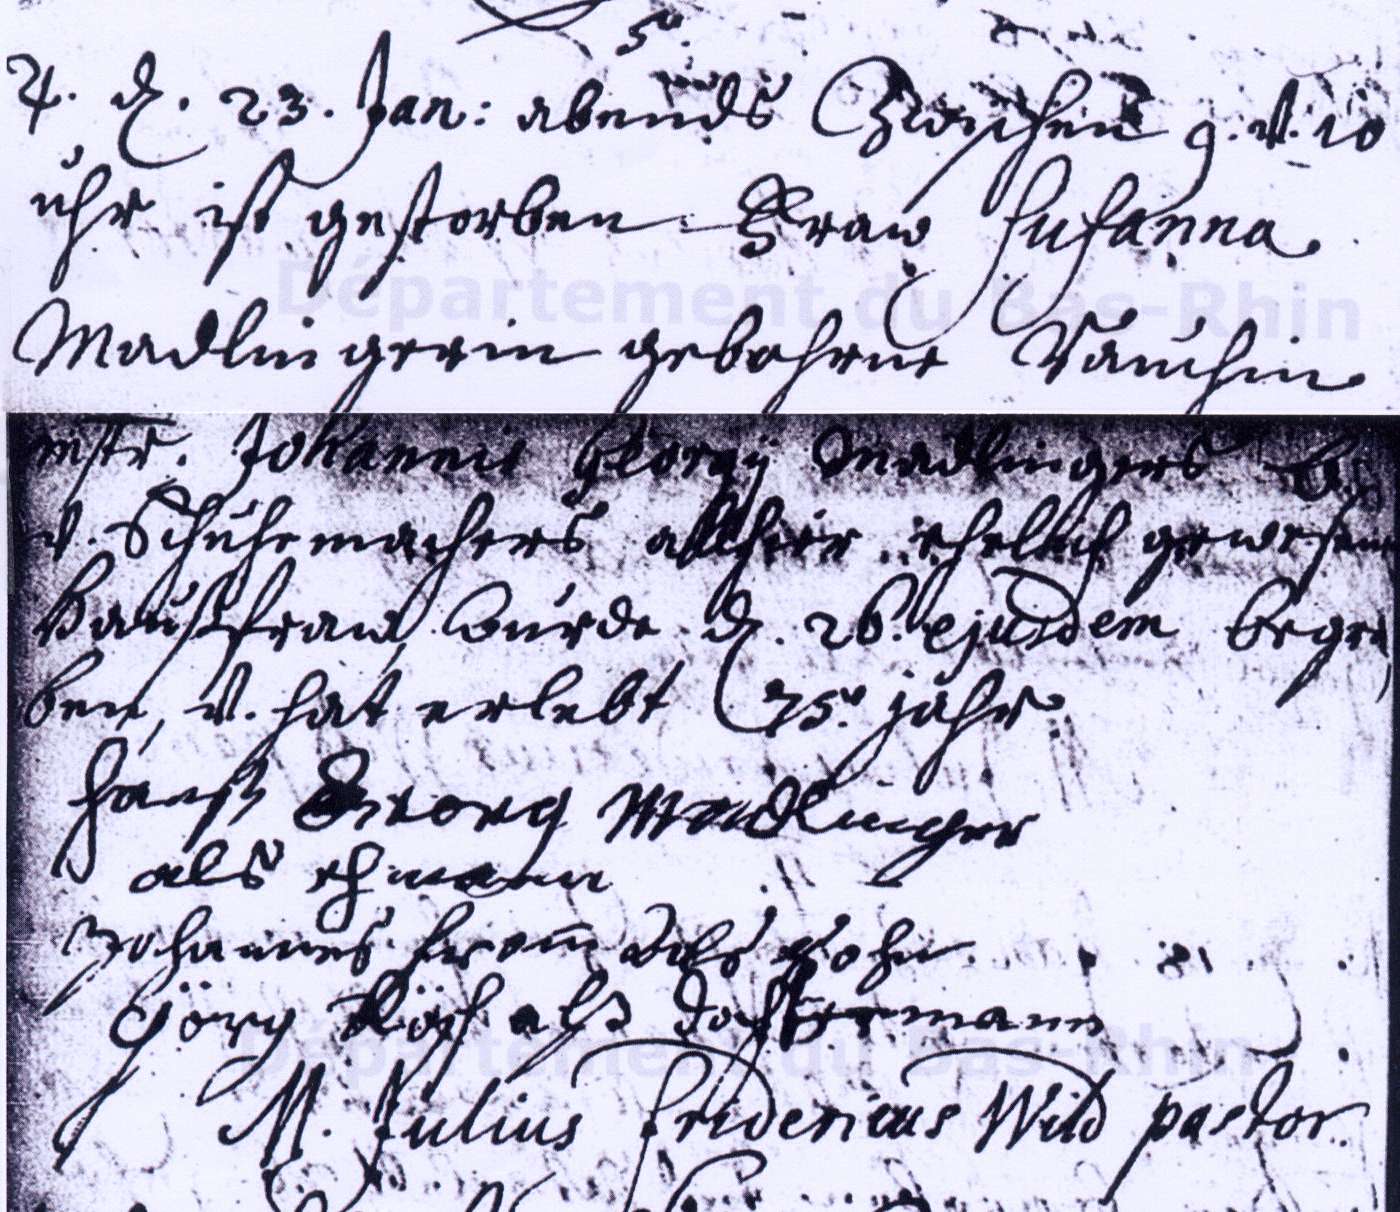 5.
♃. d. 23. Jan: abends Zwischen 9. v. 10
uhr ist gestorben Fraw Susanna
Madlingerin gebohrne
mstr. Johannis Georgÿ Madlingers B.
v. Schuhmachers allhier ehelich gewesene
Haußfraw, wurde d. 26. ejusdem begra
ben, v. hat erlebt 75. jahr.
Hanß Georg Madlinger
als ehmann
Johannes als sohn
Görg als dochtermann
M. Julius Fridericus Wild pastor.
Département du Bas-Rhin
Département du Bas-Rhin